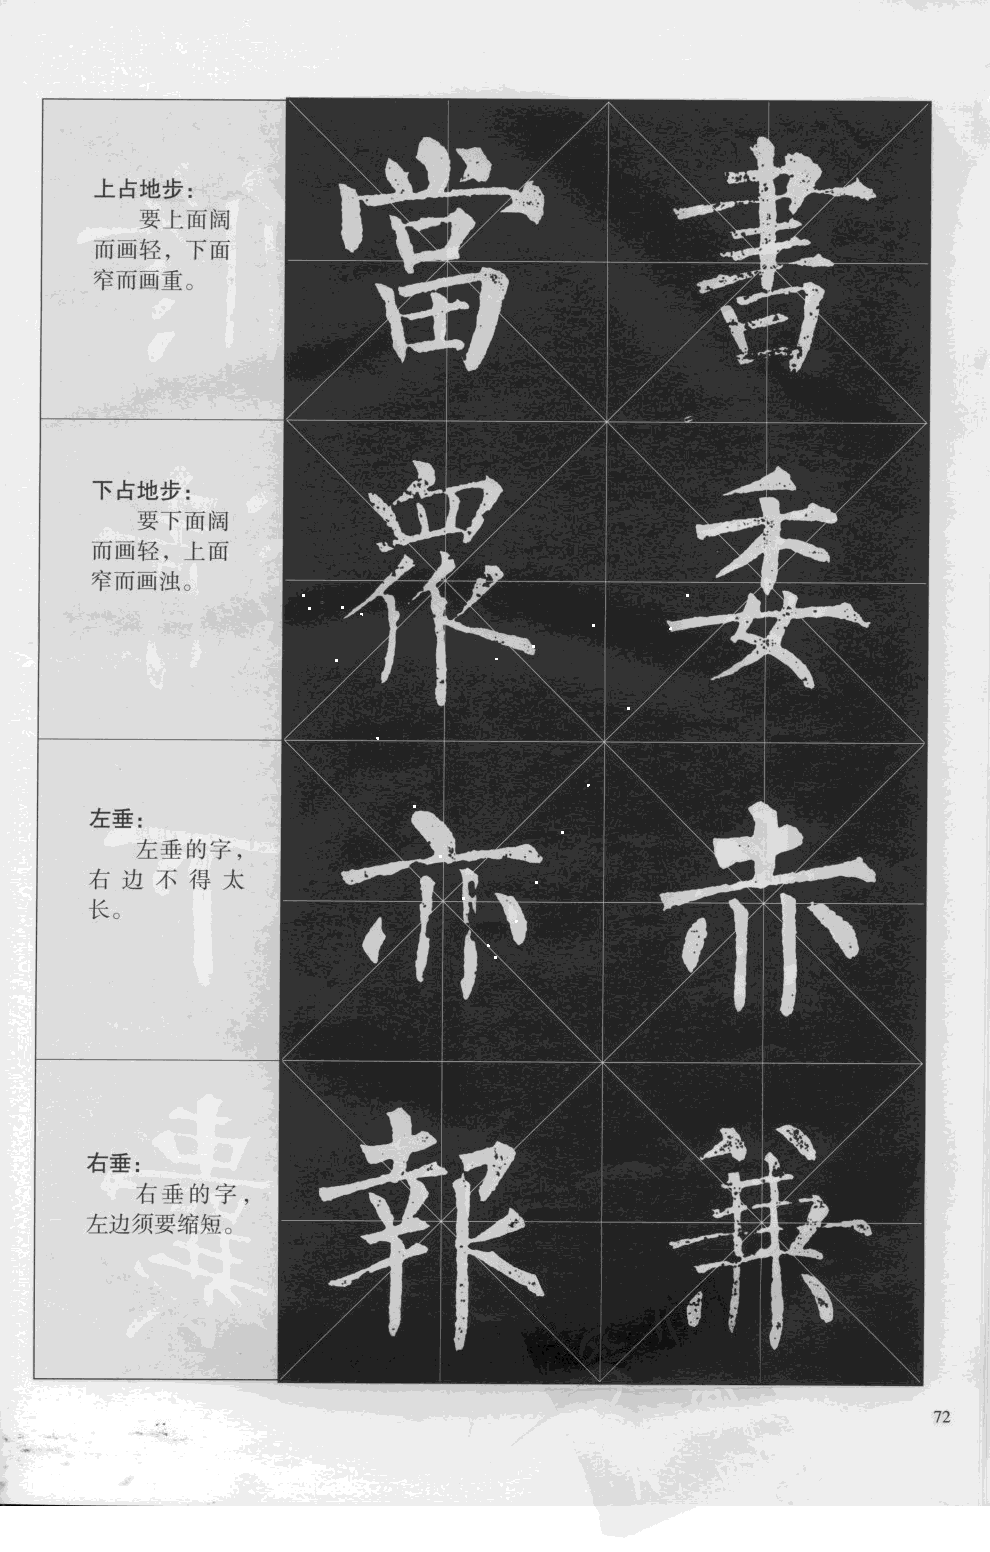 上占地步：
要上面阔
而画轻，下面
窄而画重。
當 書
下占地步：
要下面阔
而画轻，上面
窄而画浊。
眾 委
左垂：
左垂的字，
右边不得太
长。
亦 赤
右垂：
右垂的字，
左边须要缩短。
報 兼
72